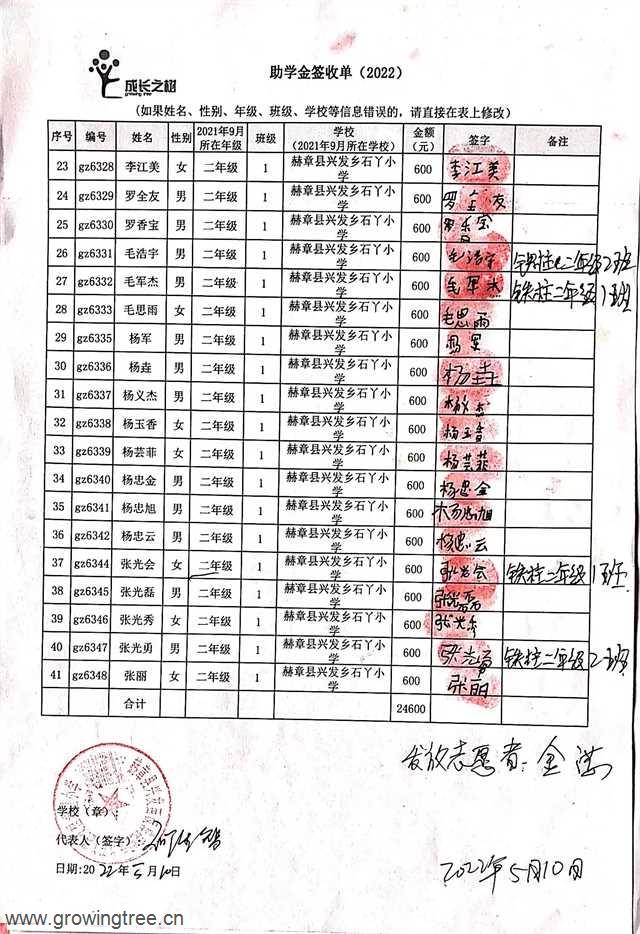 成长之树
助学金签收单（2022）
(如果姓名、性别、年级、班级、学校等信息错误的，请直接在表上修改)
序号 编号 姓名 性别 2021年9月所在年级 班级 学校（2021年9月所在学校） 金额（元） 签字 备注
23 gz6328 李江美 女 二年级 1 赫章县兴发乡石丫小学 600 李江美
24 gz6329 罗全友 男 二年级 1 赫章县兴发乡石丫小学 600 罗全友
25 gz6330 罗香宝 男 二年级 1 赫章县兴发乡石丫小学 600
26 gz6331 毛浩宇 男 二年级 1 赫章县兴发乡石丫小学 600 毛浩宇 铁柱二年级2班
27 gz6332 毛军杰 男 二年级 1 赫章县兴发乡石丫小学 600 毛军杰 铁柱二年级1班
28 gz6333 毛思雨 女 二年级 1 赫章县兴发乡石丫小学 600 毛思雨
29 gz6335 杨军 男 二年级 1 赫章县兴发乡石丫小学 600 杨军
30 gz6336 杨垚 男 二年级 1 赫章县兴发乡石丫小学 600 杨垚
31 gz6337 杨义杰 男 二年级 1 赫章县兴发乡石丫小学 600 杨义杰
32 gz6338 杨玉香 女 二年级 1 赫章县兴发乡石丫小学 600 杨玉香
33 gz6339 杨芸菲 女 二年级 1 赫章县兴发乡石丫小学 600 杨芸菲
34 gz6340 杨忠金 男 二年级 1 赫章县兴发乡石丫小学 600 杨忠金
35 gz6341 杨忠旭 男 二年级 1 赫章县兴发乡石丫小学 600 杨忠旭
36 gz6342 杨忠云 男 二年级 1 赫章县兴发乡石丫小学 600 杨忠云
37 gz6344 张光会 女 二年级 1 赫章县兴发乡石丫小学 600 张光会 铁柱二年级1班
38 gz6345 张光磊 男 二年级 1 赫章县兴发乡石丫小学 600 张光磊
39 gz6346 张光秀 女 二年级 1 赫章县兴发乡石丫小学 600 张光秀
40 gz6347 张光勇 男 二年级 1 赫章县兴发乡石丫小学 600 张光勇 铁柱二年级2班
41 gz6348 张丽 女 二年级 1 赫章县兴发乡石丫小学 600 张丽
合计 24600
发放志愿者：金
学校（章）：
代表人（签字）：
日期：2022年5月10日
2022年5月10日
www.growingtree.cn